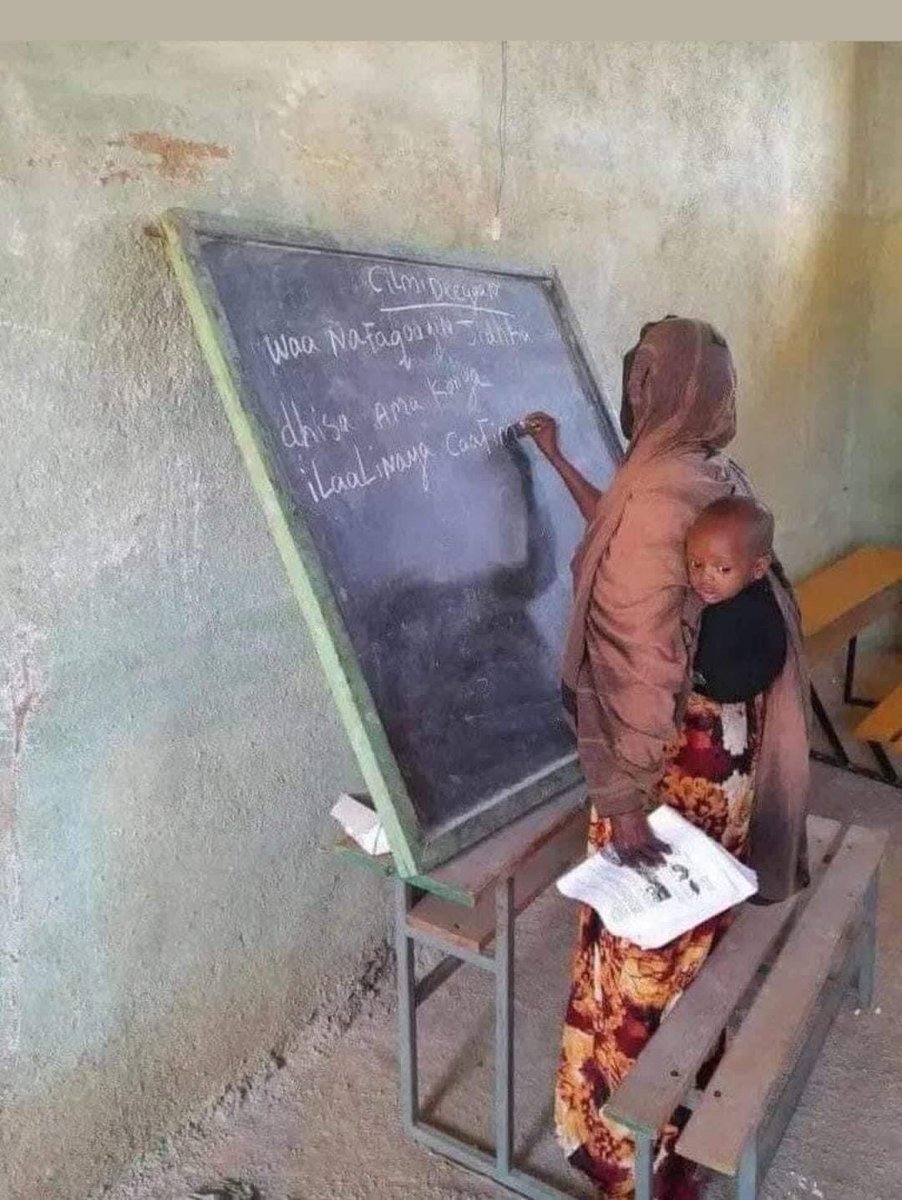 Cilmi Deegaan
waa Nafaqooyin Jidhka
dhisa Ama Koriya
iLaaLiNaya Caafim